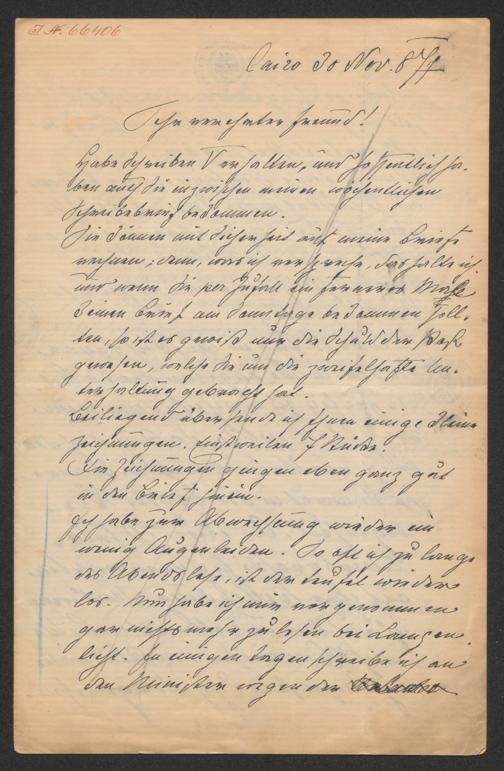 I. N. 66406
Cairo 30 Nov. 87
Sehr verehrter Freund!
Habe Schreiben V erhalten, und hoffentlich ha-
ben auch Sie inzwischen meinen wöchentlichen
Schreibebrief bekommen.
Sie können mit Sicherheit auf meine Briefe
rechnen; denn, was ich verspreche, das halte ich
und wenn Sie per Zufall ein ferneres Mal
keinen Brief am Samstage bekommen soll-
ten, so ist es gewiß nur die Schuld der Post
gewesen, welche Sie um die zweifelhafte Un-
terhaltung gebracht hat.
Beiliegend übersende ich Ihnen einige kleine
Zeichnungen. Einstweilen 7 Stücke.
Die Zeichnungen gingen eben ganz gut
in den Brief hinein.
Ich habe zur Abwechslung wieder ein
wenig Augenleiden. So oft ich zu lange
des Abends lese, ist der Teufel wieder
los. Nun habe ich mir vorgenommen
gar nichts mehr zu lesen bei Lampen
licht. In einigen Tagen schreibe ich an
den Minister wegen der